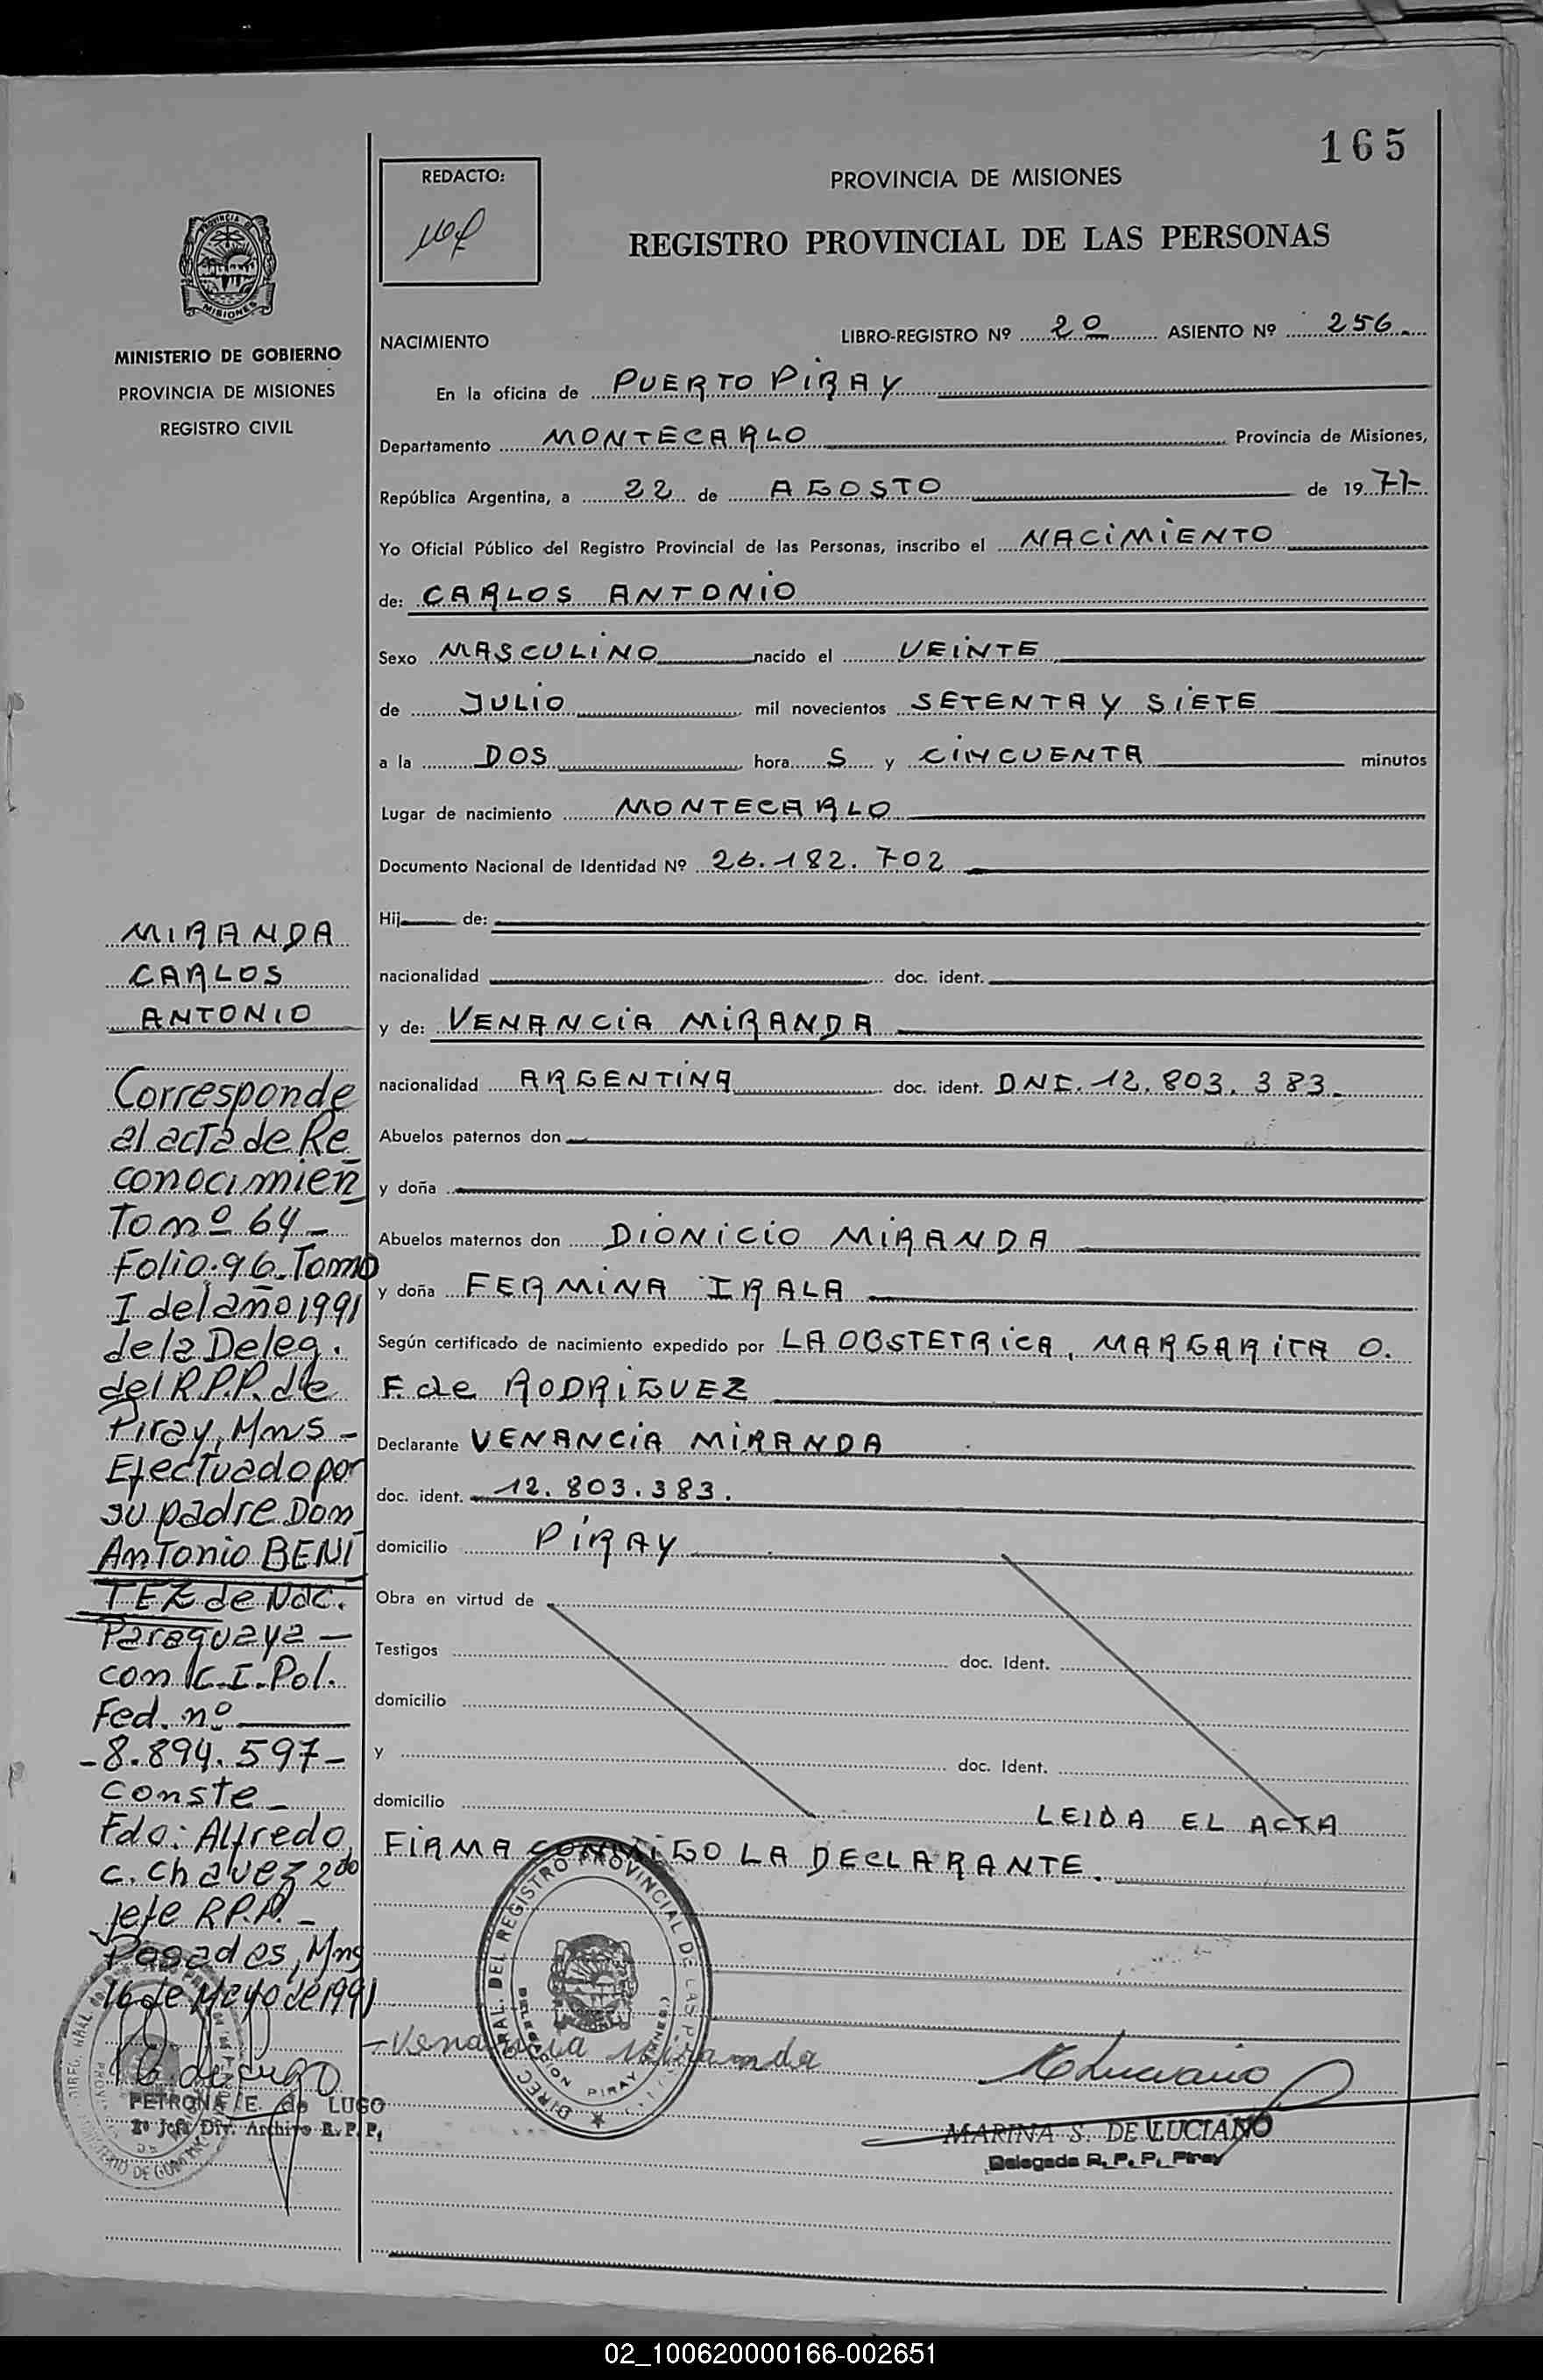 165
REDACTO:
PROVINCIA DE MISIONES
REGISTRO PROVINCIAL DE LAS PERSONAS
MISIONES
MINISTERIO DE GOBIERNO
PROVINCIA DE MISIONES
REGISTRO CIVIL
NACIMIENTO LIBRO-REGISTRO Nº 20 ASIENTO Nº 256.
En la oficina de PUERTO PIRAY
Departamento MONTECARLO Provincia de Misiones,
República Argentina, a 22 de AGOSTO de 1977-
Yo Oficial Público del Registro Provincial de las Personas, inscribo el NACIMIENTO
de: CARLOS ANTONIO
Sexo MASCULINO nacido el VEINTE
de JULIO mil novecientos SETENTA Y SIETE
a la DOS hora S y CINCUENTA minutos
Lugar de nacimiento MONTECARLO
Documento Nacional de Identidad Nº 26.182.702
Hij de:
nacionalidad doc. ident.
y de: VENANCIA MIRANDA
nacionalidad ARGENTINA doc. ident. DNI. 12.803.383.
Abuelos paternos don
y doña
Abuelos maternos don DIONICIO MIRANDA
y doña FERMINA IRALA
Según certificado de nacimiento expedido por LA OBSTETRICA, MARGARITA O.
F. de RODRIGUEZ
Declarante VENANCIA MIRANDA
doc. ident. 12.803.383.
domicilio PIRAY
Obra en virtud de
Testigos doc. Ident.
domicilio
y doc. Ident.
domicilio LEIDA EL ACTA
FIRMA CONMIGO LA DECLARANTE.
DIREC. GRAL DEL REGISTRO PROVINCIAL DE LAS
DELEGACION PIRAY
Venancia Miranda
MARINA S. DE LUCIANO
Delegada R. P. P. Piray
MIRANDA
CARLOS
ANTONIO
Corresponde
al acta de Re
conocimien
To nº 64-
Folio.96.Tomo
I del año 1991
de la Deleg.
del R.P.P. de
Piray, Mns-
Efectuado por
su padre Don
Antonio BENI
TEZ de Nac.
Paraguaya-
con C.I. Pol.
Fed. nº
-8.894.597-
Conste-
Fdo: Alfredo
C. Chavez 2do
jefe R.P.P.-
Posadas, Mns
16 de Mayo de 1991
PETRONA E. de LUGO
2º Jefe Div. Archivo R. P. P.
02_100620000166-002651